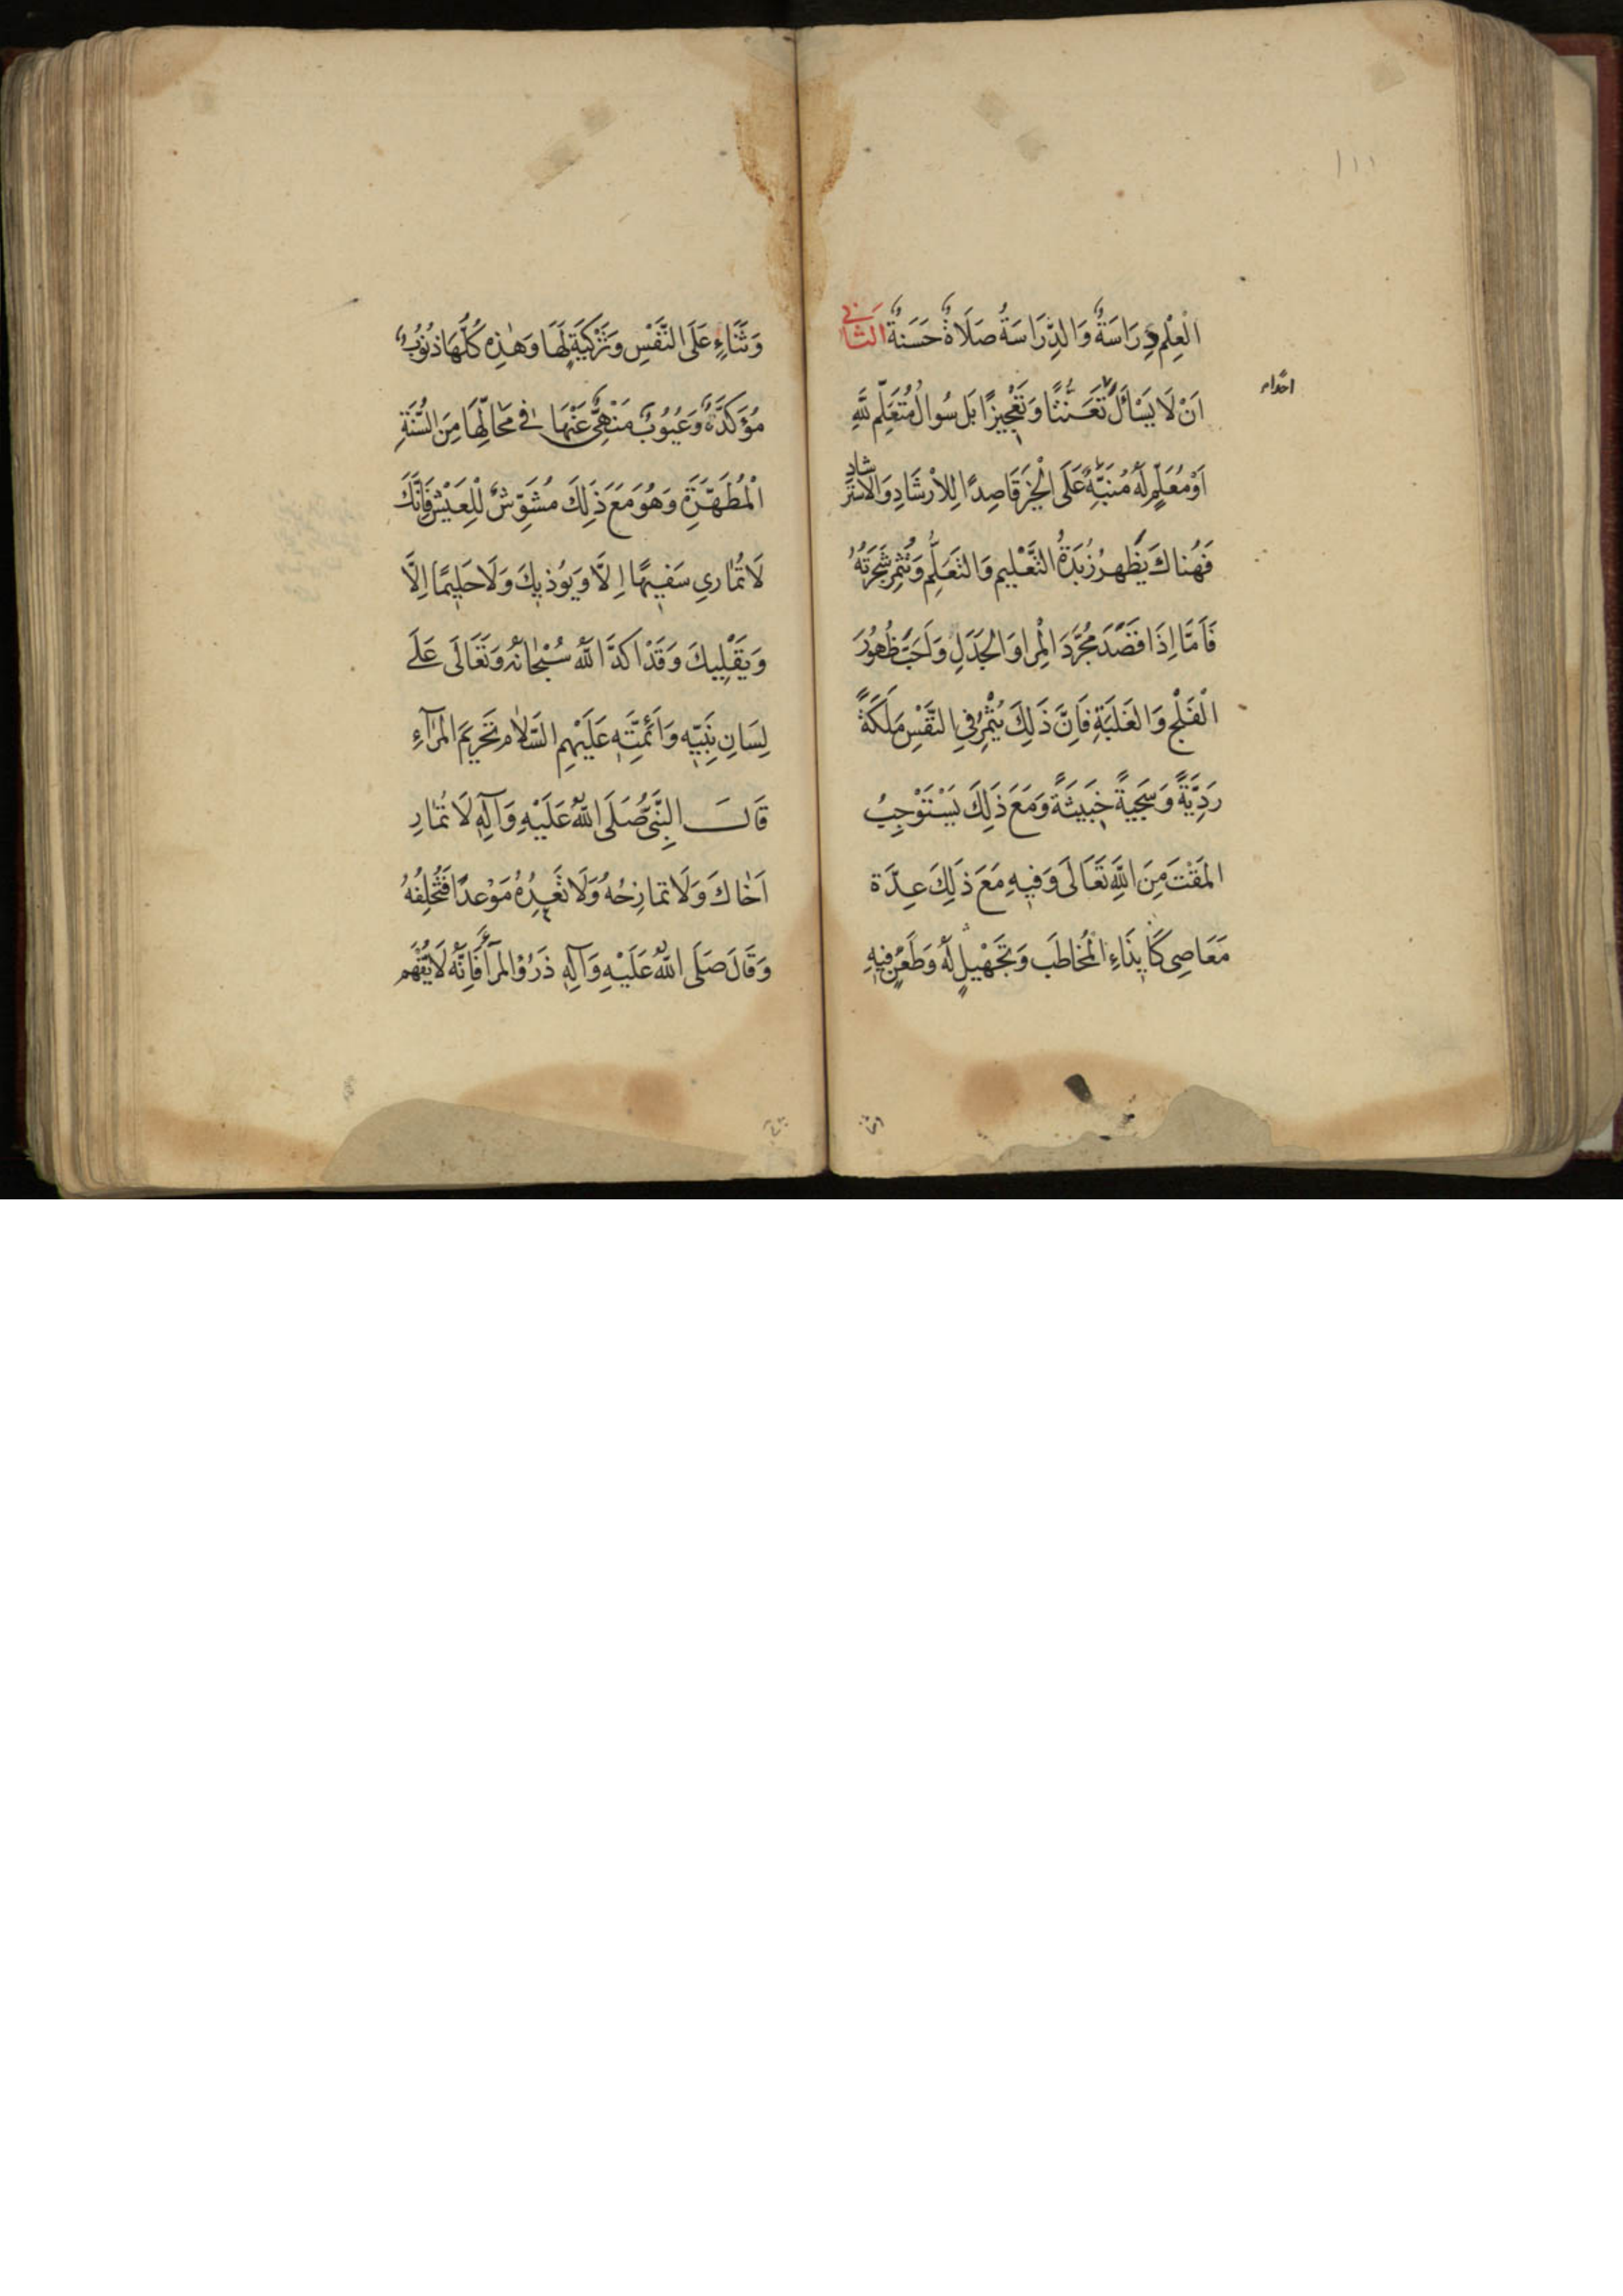 ١١١
الْعِلْمِ دِرَاسَةٌ وَالدِّرَاسَةُ صَلَاةٌ حَسَنةٌ الثَّانِي
اَنْ لَا يَسْأَلَ تَعَنُّتًا وَتَعْجِيزًا بَل سُوالَ مُتَعَلِّمٍ لِلَّهِ
احدًا
اَوْ مُعَلِّمٍ لَهُ مُنَبِّهٍ عَلَى الْخَيْرِ قَاصِدًا لِلْاِرْشَادِ وَالْاِسْتِرْشادِ
فَهُنَاكَ يَظْهرُ زُبْدَةُ التَّعْلِيمِ وَالتَعَلُّمِ وَتُثْمِرُ شَجَرَتُهُ
فَاَمَّا اِذَا قَصَدَ مُجَرَّدَ الْمِرا وَالْجَدَلِ وَاَحَبَّ ظُهُورَ
الْفَلْجِ وَالغَلَبَةِ فَاِنَّ ذَلِكَ يُثْمِرُ فِي النَّفْسِ مَلَكَةً
رَدِيَّةً وَسَجِيةً خَبِيثَةً وَمَعَ ذَلِكَ يَسْتَوْجِبُ
المَقْتَ مِنَ اللَّهِ تَعَالَى وَفيهِ مَعَ ذَلِكَ عِدَّة
مَعَاصِى كَاِيذَاءِ الْمُخاطَب وَتَجْهِيلٍ لَهُ وَطَعْنٍ فِيهِ
وَثَنَاءٍ عَلَى النَّفْسِ وَتَزْكِيَةٍ لَهَا وَهَذِهِ كُلُّهَا ذُنُوبٌ
مُؤَكَّدَةٌ وَعُيُوبٌ مَنْهِىٌّ عَنْهَا فى مَحَالِّهَا مِنَ السُّنَّةِ
الْمُطَهَّرَةِ وَهُوَ مَعَ ذَلِكَ مُشَوِّشٌ لِلْعَيْشِ فَاِنَّكَ
لَا تُمَارِي سَفِيهًا اِلَّا وَيُوذيكَ وَلَا حَلِيمًا اِلَّا
وَيَقْلِيكَ وَقَدْ اَكَّدَ اللَّهُ سُبْحَانَهُ وَتَعَالَى عَلَى
لِسَانِ نَبِيِّهِ وَاَئِمَّتِهِ عَلَيْهِمِ السَّلَامُ تَحْرِيمَ الْمِرَآءِ
قَالَ النَّبِىُّ صَلَى اللَّهُ عَلَيْهِ وَآلِهِ لَا تُمَارِ
اَخَاكَ وَلَا تمازِحُهُ وَلَا تَعِدْهُ مَوْعدًا فَتُخْلِفُهُ
وَقَالَ صَلَى اللَّهُ عَلَيْهِ وَآلِهِ ذَرُوْا المِرآءَ فَاِنَّهُ لَا تُفْهَم